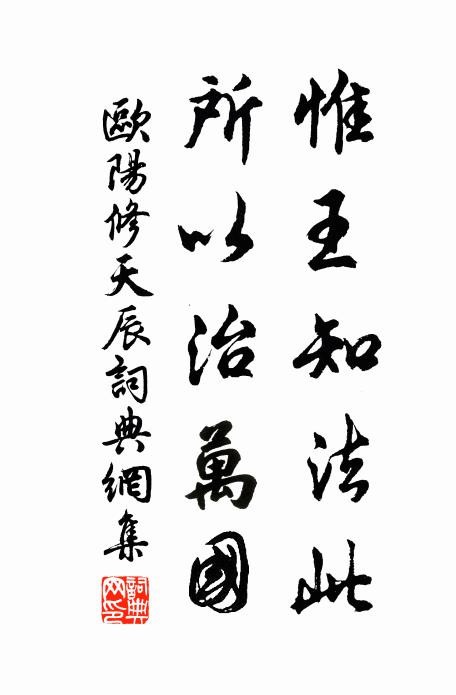 惟王知法此
所以治萬國
歐陽修天辰詞典網集
詞典網印